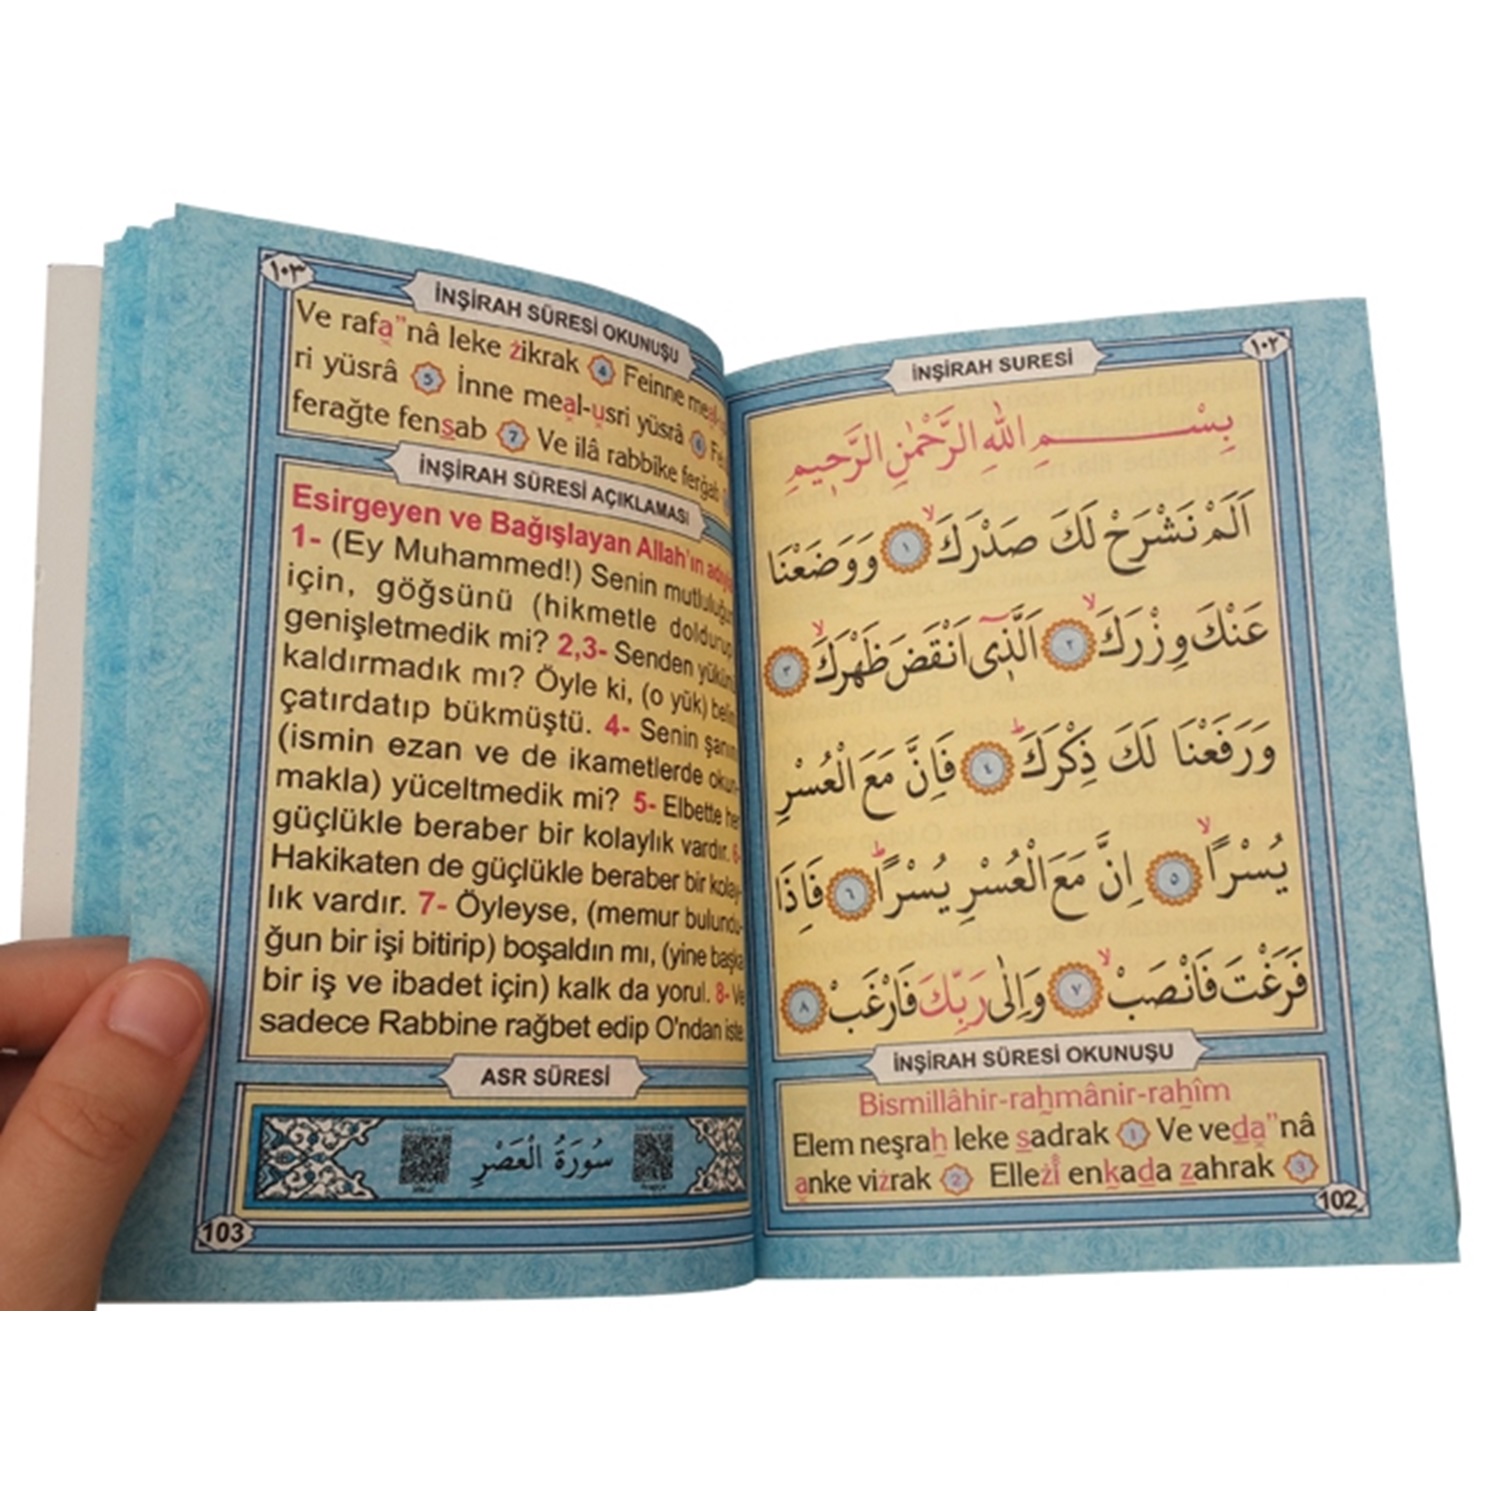 İNŞİRAH SURESİ
١٠٢
بِسْمِ اللهِ الرَّحْمٰنِ الرَّحٖيمِ
اَلَمْ نَشْرَحْ لَكَ صَدْرَكَۙ ١ وَوَضَعْنَا
عَنْكَ وِزْرَكَۙ ٢ اَلَّذٖٓي اَنْقَضَ ظَهْرَكَۙ ٣
وَرَفَعْنَا لَكَ ذِكْرَكَۜ ٤ فَاِنَّ مَعَ الْعُسْرِ
يُسْرًاۙ ٥ اِنَّ مَعَ الْعُسْرِ يُسْرًاۜ ٦ فَاِذَا
فَرَغْتَ فَانْصَبْۙ ٧ وَاِلٰى رَبِّكَ فَارْغَبْ ٨
İNŞİRAH SÜRESİ OKUNUŞU
Bismillâhir-rahmânir-rahîm
Elem neşrah leke sadrak 1 Ve veda"nâ
anke vizrak 2 Ellezî enkada zahrak 3
102
١٠٣
İNŞİRAH SÜRESİ OKUNUŞU
Ve rafa"nâ leke żikrak 4 Feinne
ri yüsrâ 5 İnne meal-usri yüsrâ 6
ferağte fensab 7 Ve ilâ rabbike ferğab
İNŞİRAH SÜRESİ AÇIKLAMASI
Esirgeyen ve Bağışlayan Allah'ın
1- (Ey Muhammed!) Senin
için, göğsünü (hikmetle doldurup
genişletmedik mi? 2,3- Senden
kaldırmadık mı? Öyle ki, (o yük)
çatırdatıp bükmüştü. 4- Senin
(ismin ezan ve de ikametlerde okun-
makla) yüceltmedik mi? 5- Elbette her
güçlükle beraber bir kolaylık vardır. 6-
Hakikaten de güçlükle beraber bir kolay-
lık vardır. 7- Öyleyse, (memur bulundu-
ğun bir işi bitirip) boşaldın mı, (yine başka
bir iş ve ibadet için) kalk da yorul. 8- Ve
sadece Rabbine rağbet edip O'ndan iste
ASR SÜRESİ
سُورَةُ الْعَصْرِ
103